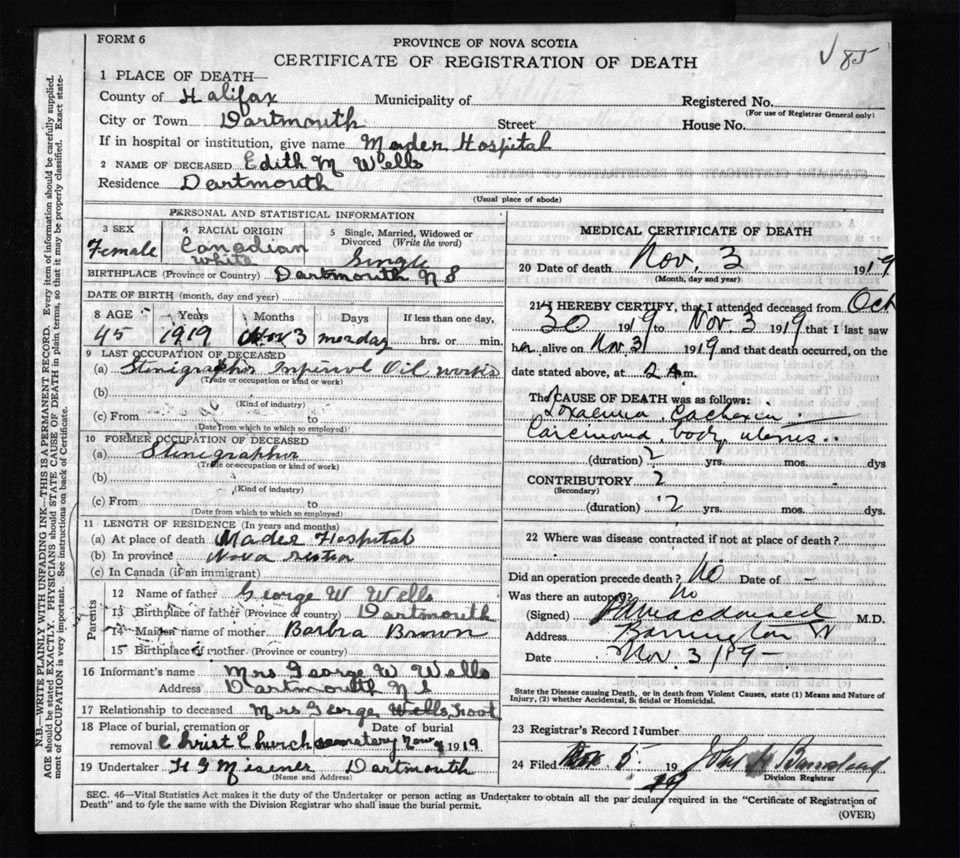 FORM 6
PROVINCE OF NOVA SCOTIA
CERTIFICATE OF REGISTRATION OF DEATH
√ 85
1 PLACE OF DEATH—
County of Halifax Municipality of Registered No.
(For use of Registrar General only)
City or Town Dartmouth Street House No.
If in hospital or institution, give name Mader Hospital
2 NAME OF DECEASED Edith M Wells
Residence Dartmouth
(Usual place of abode)
PERSONAL AND STATISTICAL INFORMATION
3 SEX 4 RACIAL ORIGIN 5 Single, Married, Widowed or Divorced (Write the word)
Female Canadian white Single
BIRTHPLACE (Province or Country) Dartmouth N S
DATE OF BIRTH (month, day and year)
8 AGE Years Months Days If less than one day,
45 1919 Nov 3 monday hrs. or min.
9 LAST OCCUPATION OF DECEASED
(a) Stenigrapher Imperial Oil works
(Trade or occupation or kind of work)
(b)
(Kind of industry)
(c) From to
(Date from which to which so employed)
10 FORMER OCCUPATION OF DECEASED
(a) Stenigrapher
(Trade or occupation or kind of work)
(b)
(Kind of industry)
(c) From to
(Date from which to which so employed)
11 LENGTH OF RESIDENCE (In years and months)
(a) At place of death Mader Hospital
(b) In province Nova Scotia
(c) In Canada (if an immigrant)
Parents
12 Name of father George W Wells
13 Birthplace of father (Province or country) Dartmouth
14 Maiden name of mother Barbra Brown
15 Birthplace of mother (Province or country)
16 Informant's name Mrs George W Wells
Address Dartmouth N S
17 Relationship to deceased Mrs George Wells
18 Place of burial, cremation or removal Date of burial
Christ Church cemetery Nov 4 1919
19 Undertaker H G Misener Dartmouth
(Name and Address)
MEDICAL CERTIFICATE OF DEATH
20 Date of death Nov. 3 1919
(Month, day and year)
21 I HEREBY CERTIFY, that I attended deceased from Oct
30 1919 to Nov. 3 1919 that I last saw
her alive on Nov 3 1919 and that death occurred, on the
date stated above, at 2 A m.
The CAUSE OF DEATH was as follows:
Toxaemia Cachexia
Carcinoma, body, uterus
(duration) 2 yrs. mos. dys
CONTRIBUTORY 2
(Secondary)
(duration) 2 yrs. mos. dys.
22 Where was disease contracted if not at place of death?
Did an operation precede death? No Date of –
Was there an autopsy? No
(Signed) Macdonald M.D.
Address Barrington St
Date Nov. 3/19–
State the Disease causing Death, or in death from Violent Causes, state (1) Means and Nature of
Injury, (2) whether Accidental, Suicidal or Homicidal.
23 Registrar's Record Number
24 Filed Nov 5 19 19 John H Barnstead
Division Registrar
SEC. 46—Vital Statistics Act makes it the duty of the Undertaker or person acting as Undertaker to obtain all the particulars required in the "Certificate of Registration of
Death" and to fyle the same with the Division Registrar who shall issue the burial permit.
(OVER)
N.B.—WRITE PLAINLY WITH UNFADING INK—THIS IS A PERMANENT RECORD. Every item of information should be carefully supplied.
AGE should be stated EXACTLY. PHYSICIANS should STATE CAUSE OF DEATH in plain terms, so that it may be properly classified. Exact state-
ment of OCCUPATION is very important. See instructions on back of Certificate.